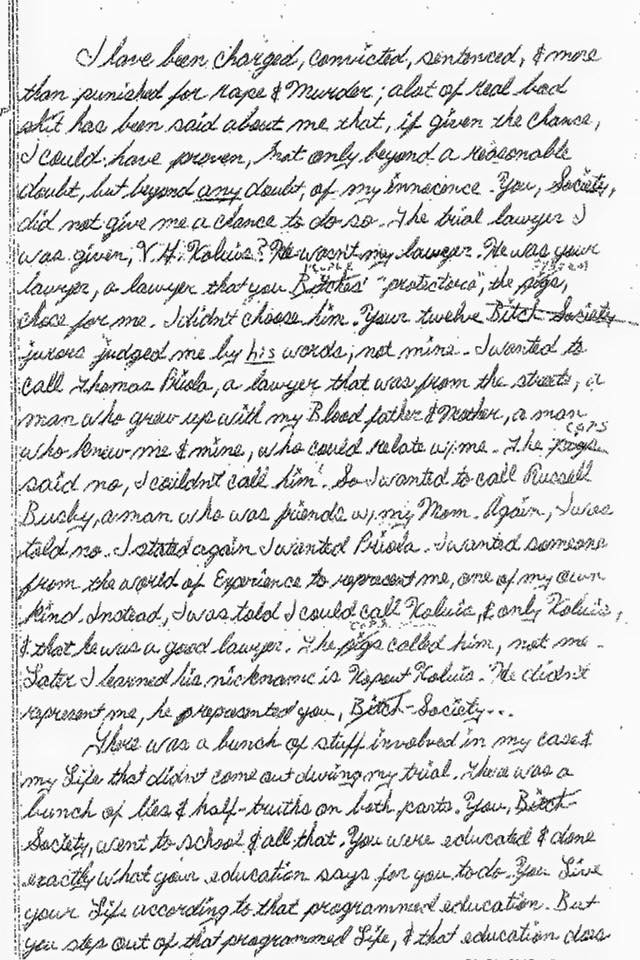 I have been charged, convicted, sentenced, & more
than punished for rape & Murder; alot of real bad
shit has been said about me that, if given the chance,
I could have proven, not only beyond a reasonable
doubt, but beyond any doubt, of my innocence. You, Society,
did not give me a chance to do so. The trial lawyer I
was given, V.H. Koluis? He wasn't my lawyer. He was your
lawyer, a lawyer that you Bitches' "protectors", the pigs,
chose for me. I didn't choose him. Your twelve Bitch-Society
jurors judged me by his words, not mine. I wanted to
call Thomas Priola, a lawyer that was from the streets, a
man who grew up with my Blood father & Mother, a man
cops
who knew me & mine, who could relate w/ me. The pigs
said no, I couldn't call him! So I wanted to call Russell
Busby, a man who was friends w/ my Mom. Again, I was
told no. I stated again I wanted Priola. I wanted someone
from the world of Experience to represent me, one of my own
kind. Instead, I was told I could call Koluis, & only Koluis,
& that he was a good lawyer. The
cops
pigs called him, not me.
Later I learned his nickname is Kopout Koluis. He didn't
represent me, he prepresented you, Bitch-Society...
There was a bunch of stuff involved in my case &
my Life that didn't come out during my trial. There was a
bunch of lies & half-truths on both parts. You, Bitch-
Society, went to school & all that. You were educated & done
exactly what your education says for you to do. You Live
your Life according to that programmed education. But
you step out of that programmed Life, & that education does